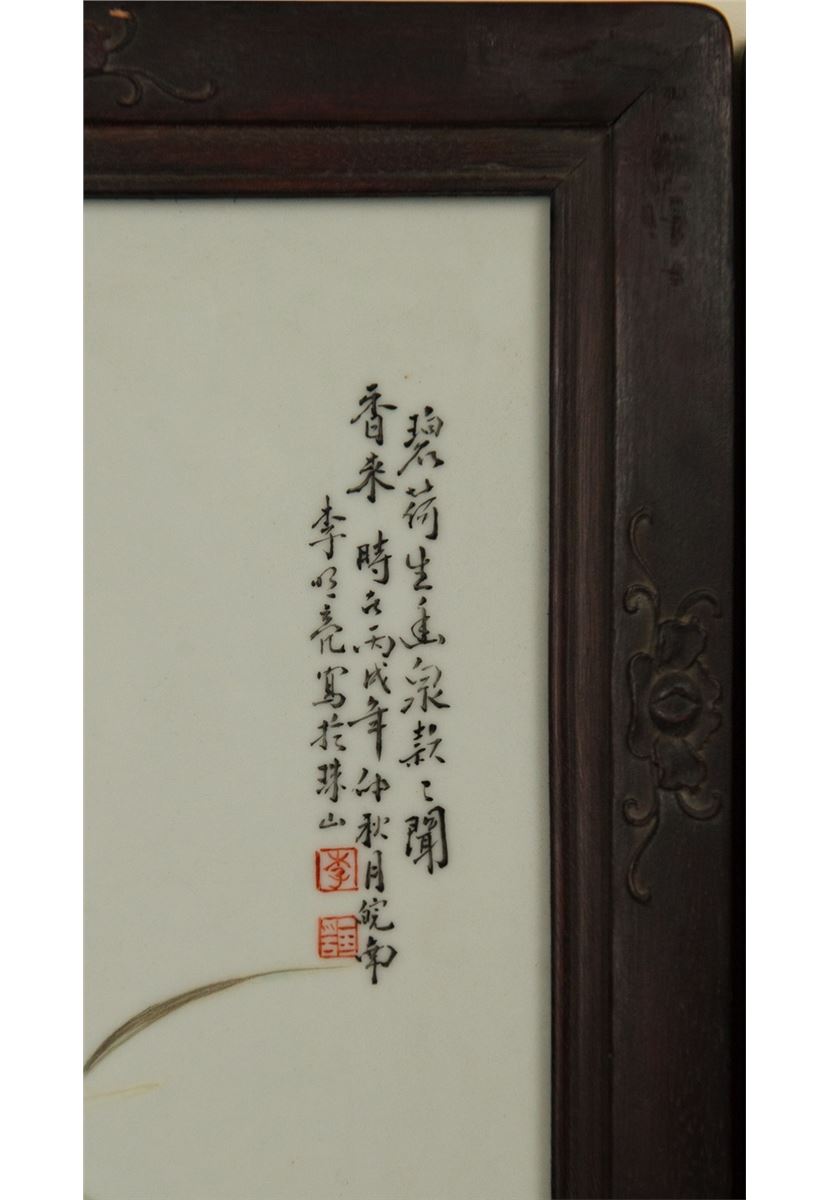 碧荷生幽泉款〻聞
香來 時在丙戌年仲秋月皖南
李明亮寫於珠山
李